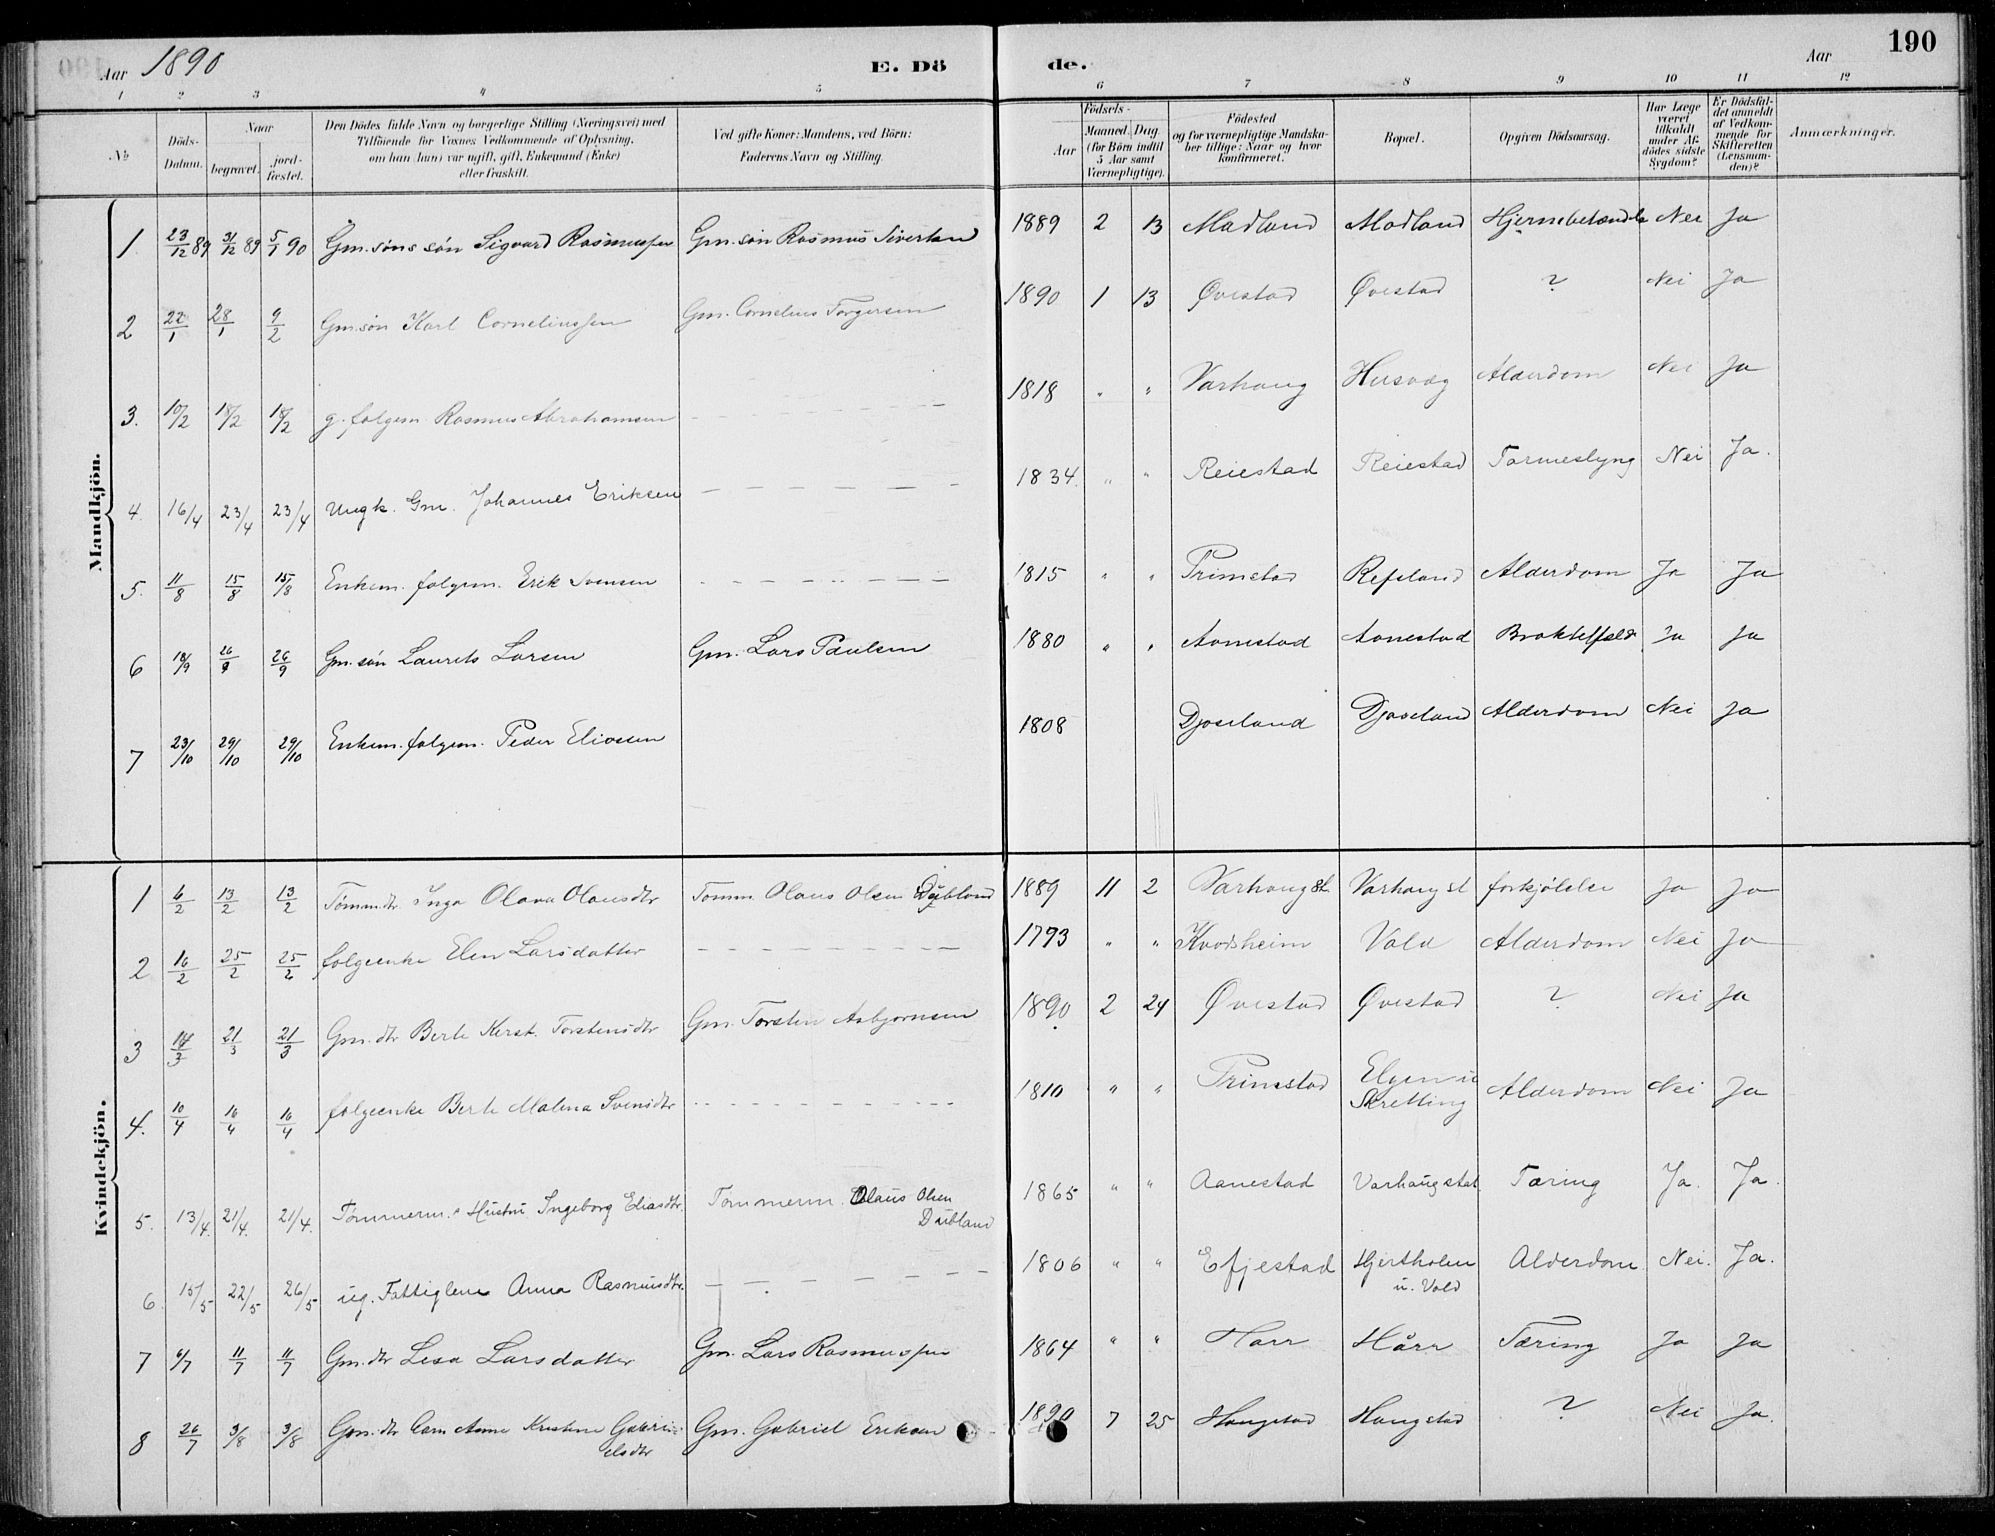 Aar 1890 E. Dö de. Aar 190
1 2 3 4 5 6 7 8 9 10 11 12
№
Döds-Datum.
Naar begravet. jordfæstet.
Den Dödes fulde Navn og borgerlige Stilling (Næringsvei) med
Tilföiende for Voxnes Vedkommende af Oplysning,
om han (hun) var ugift, gift, Enkemand (Enke)
eller fraskilt.
Ved gifte Koner: Mandens, ved Börn:
Faderens Navn og Stilling.
Födsels-
Aar Maaned. Dag.
(for Börn indtil
5 Aar samt
Værnepligtige).
Födested
og for værnepligtige Mandskaber tillige: Naar og hvor
konfirmeret.
Bopæl.
Opgiven Dödsaarsag.
Har Læge
været
tilkaldt
under Afdödes sidste
Sygdom?
Er Dödsfaldet anmeldt
af Vedkommende for
Skifteretten
(Lensmanden)?
Anmærkninger.
Mandkjön.
1 23/12 89 31/12 89 5/1 90 Gm. söns sön Sigvard Rasmussen Gm. sön Rasmus Sivertsen 1889 2 13 Madland Madland Hjernebetænde Nei Ja
2 22/1 28/1 9/2 Gm. sön Karl Corneliussen Gm. Cornelius Torgersen 1890 1 13 Øvestad Øvestad ? Nei Ja
3. 10/2 18/2 18/2 g. folgem. Rasmus Abrahamsen 1818 " " Varhaug Husvæg Alderdom Nei Ja
4. 16/4 23/4 23/4 Ungk. Gm. Johannes Eriksen 1834 " " Reiestad Reiestad Tarmeslyng Nei Ja.
5. 11/8 15/8 15/8 Enkem. folgem. Erik Svensen 1815 " " Primstad Refsland Alderdom Ja Ja
6 18/9 26/9 26/9 Gm. sön Laurits Larsen Gm. Lars Paulsen 1880 " " Aanestad Aanestad Ja Ja
7 23/10 29/10 29/10 Enkem. folgem. Peder Eliassen 1808 Djoseland Djoseland Alderdom Nei Ja
Kvindekjön.
1 6/2 13/2 13/2 Tömm. dtr Inga Olava Olausdtr Tomm. Olaus Olsen Dubland 1889 11 2 Varhaug st. Varhaug st forkjølelse Ja Ja
2 16/2 25/2 25/2 folgeenke Elen Larsdatter 1793 " " Kvodsheim Vold Alderdom Nei Ja
3 14/3 21/3 21/3 Gm. dtr Berte Kerst. Torstensdtr Gm. Torsten Asbjornsen 1890 2 24 Øvestad Øvestad ? Nei Ja
4. 10/4 16/4 16/4 folgeenke Berte Malena Svensdtr 1810 " " Primstad Elgen u Skretting Alderdom Nei Ja
5. 13/4. 21/4. 21/4. Tömmerm. s Hustru Ingeborg Eliasdtr. Tommerm. Olaus Olsen Dubland 1865 " " Aanestad Varhaug stat. Tæring Ja. Ja.
6. 15/5 22/5 26/5 ug. Fattiglem Anna Rasmusdtr. 1806 " " Efjestad Hjertholen u. Vold Alderdom. Nei. Ja.
7 6/7 11/7 11/7 Gm. dtr Lisa Larsdatter Gm. Lars Rasmussen 1864 " " Harr Hårr Tæring Ja Ja
8 26/7 3/8 3/8 Gm. dtr Anne Kristine Gabrielsdtr Gm. Gabriel Eriksen 1890 7 25 Haugstad Haugstad ? Nei Ja.